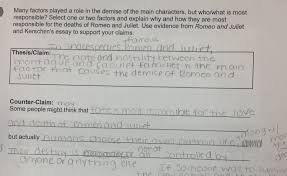 Many factors played a role in the demise of the main characters, but who/what is most
responsible? Select one or two factors and explain why and how they are most
responsible for the deaths of Romeo and Juliet. Use evidence from Romeo and Juliet
and Kerschen's essay to support your claims.
famous
In Shakespeares Romeo and Juliet,
Thesis/Claim:
The hate and hostility between the
montague and Capulet families is the main
factor that causes the demise of Romeo and
Juliet
Counter-Claim:
Some people might think that fate is most responsible for the love
and death of romeo and juliet
but actually humans choose their own
Their destiny is not controlled by
anyone or anything else
If someone was to